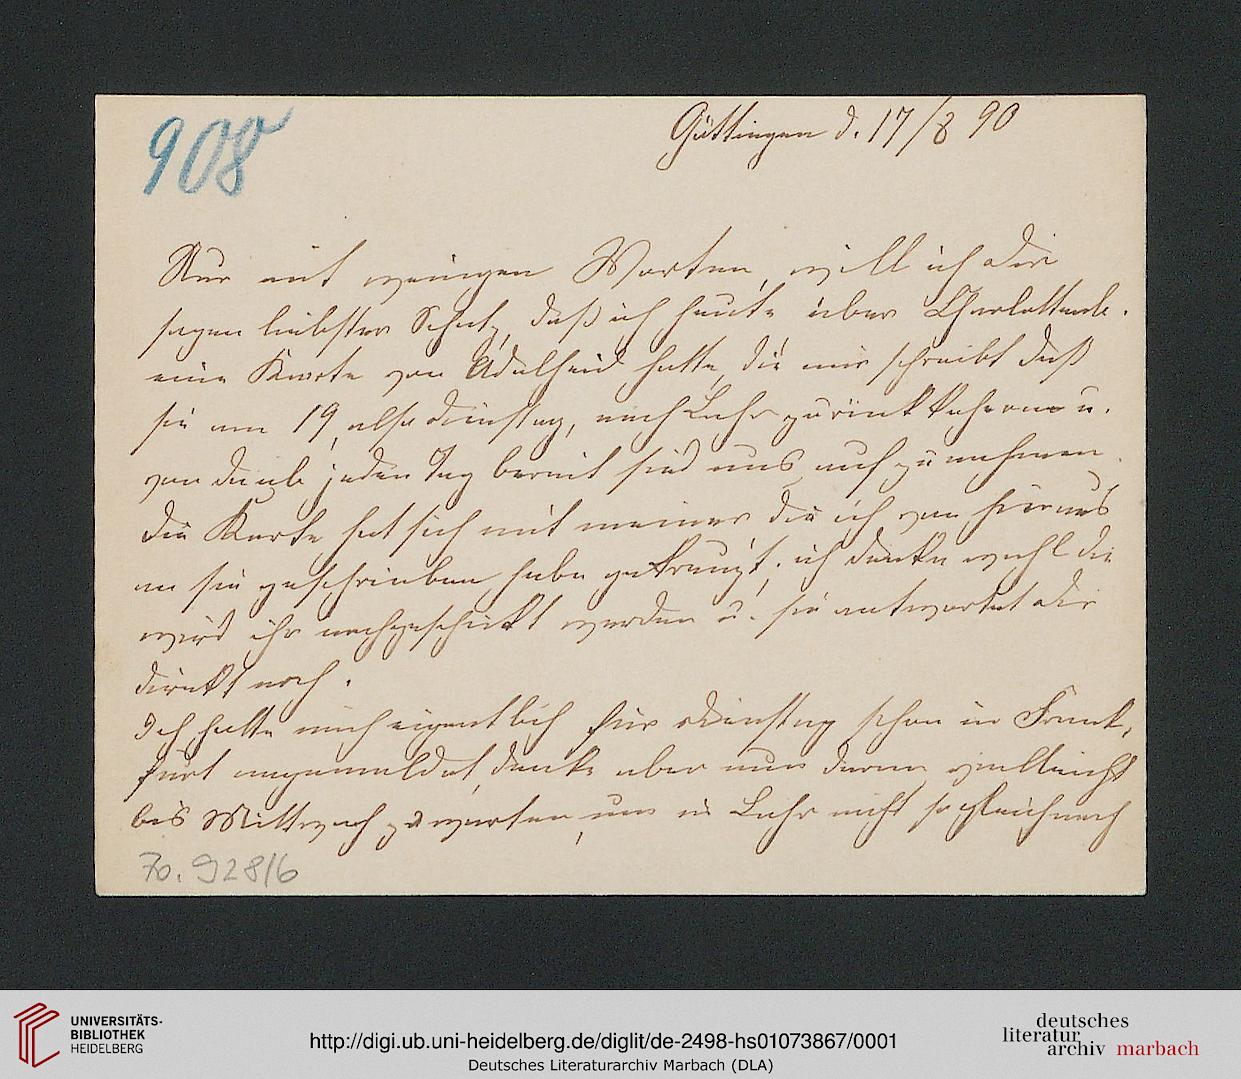 908
Göttingen d. 17/8 90
Nur mit wenigen Worten, will ich Dir
sagen liebster Schatz, daß ich heute über Charlottenb.
eine Karte von Adelheid hatte, die mir schreibt daß
sie am 19, also Dienstag, nach Lahr zurückkehren u.
von da ab jeden Tag bereit sind uns aufzunehmen.
Die Karte hat sich mit meiner die ich von hier aus
an sie geschrieben habe gekreuzt; ich denke wohl die
wird ihr nachgeschickt werden u. sie antwortet Dir
direkt noch.
Ich hatte mich eigentlich für Dienstag schon in Frank-
furt angemeldet, denke aber nun darum vielleicht
bis Mittwoch zu warten, um in Lahr nicht so gleich nach
70.928/6
UNIVERSITÄTS-
BIBLIOTHEK
HEIDELBERG
http://digi.ub.uni-heidelberg.de/diglit/de-2498-hs01073867/0001
Deutsches Literaturarchiv Marbach (DLA)
deutsches
literatur
archiv marbach